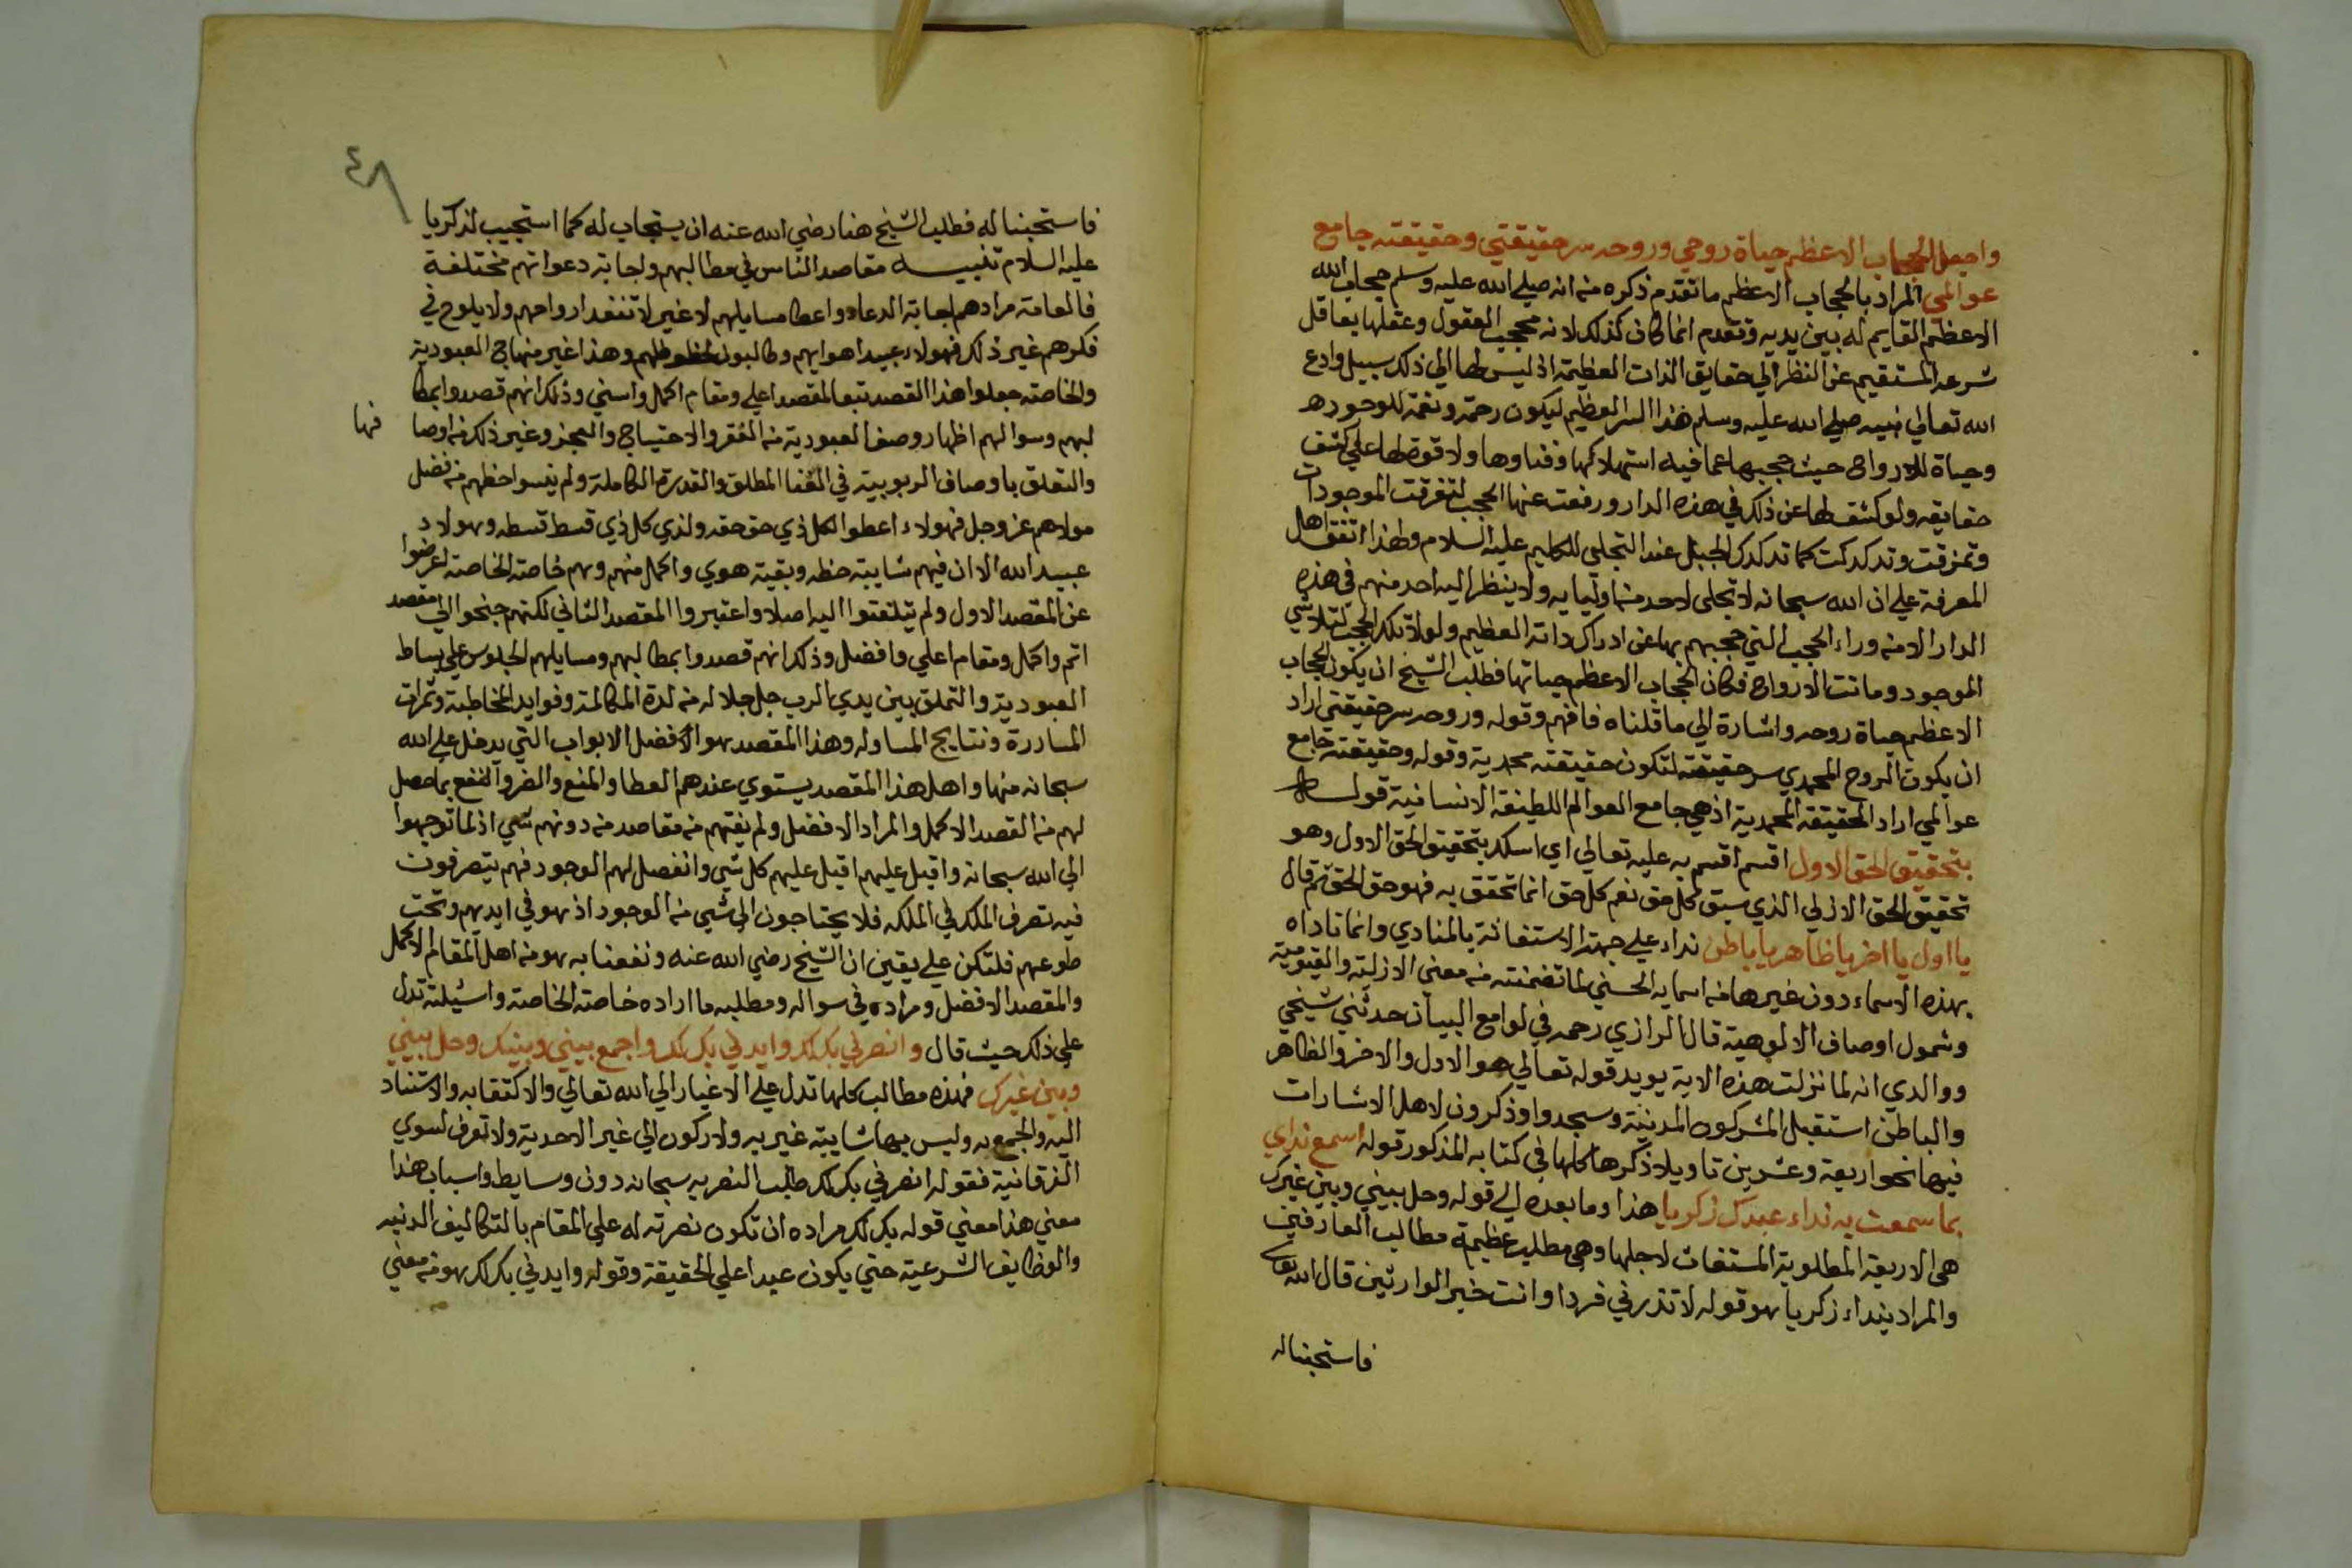 واجعل الحجاب الاعظم حياة روحي وروحه سر حقيقتي وحقيقته جامع
عوالمي المراد بالحجاب الاعظم ما تقدم ذكره منه انه صلي الله عليه وسلم حجاب الله
الاعظم القايم له بين يديه وتقدم انما كان كذلك لانه محجب العقول وعقلها بعاقل
شرعه المستقيم عن النظر الي حقايق الذات العظيمة اذ ليس لها الي ذلك سبيل وادع
الله تعالي نبيه صلي الله عليه وسلم هذا السر العظيم ليكون رحمة ونعمة للوجود
وحياة للارواح حيث حجبها عما فيه استهلاكها وفناوها ولا قوة لها علي كشف
حقايقه ولو كشف لها عن ذلك في هذه الدار ورفعت عنها الحجب لتفرقت الموجودات
وتمزقت وتدكدكت كما تدكدك الجبل عند التجلي للكليم عليه السلام ولهذا اتفق اهل
المعرفة علي ان الله سبحانه لا تجلي لاحد من اوليايه ولا ينظر اليه احد منهم في هذه
الدار الا من وراء الحجب التي حجبهم بها عن ادراك ذاته العظيم ولولا تلك الحجب لتلاشي
الموجود وماتت الارواح فكان الحجاب الاعظم حياتها فطلب الشيخ ان يكون الحجاب
الاعظم حياة روحه واشارة الي ما قلناه فافهم وقوله وروحه سر حقيقتي اراد
ان يكون الروح المحمدي سر حقيقته لتكون حقيقته محمدية وقوله وحقيقته جامع
عوالمي اراد الحقيقة المحمدية اذ هي جامع العوالم اللطيفة الانسانية قوله
بتحقيق الحق الاول اقسم اقسم به عليه تعالي اي اسلك بتحقيق الحق الاول وهو
تحقيق الحق الازلي الذي سبق كل حق نعم كل حق انما تحقق به فهو حق الحق ثم قال
يا اول يا اخر يا ظاهر يا باطن نداء علي جهة الاستغاثة بالمنادي وانما ناداه
بهذه الاسماء دون غيرها من اسمايه الحسني لما تضمنته من معني الازلية والقيومية
وشمول اوصاف الالوهية قال الرازي رحمه في لوامع البيان حدثني شيخي
ووالدي انه لما نزلت هذه الاية يريد قوله تعالي هو الاول والاخر والظاهر
والباطن استقبل المشركون المدينة وسجدوا وذكرون لاهل الاشارات
فيها نحو اربعة وعشرين تاويلا ذكرها كلها في كتابه المذكور قوله اسمع نداي
بما سمعت به نداء عبدك زكريا هذا وما بعده الي قوله وحل بيني وبين غيرك
هي الاربعة المطلوبة المستغاث لاجلها وهي مطالب عظيمة مطالب العارفين
والمراد بنداء زكريا هو قوله لا تذرني فردا وانت خير الوارثين قال الله تعالي
فاستجبنا له
٤٨
فاستجبنا له فطلب الشيخ هنا رضي الله عنه ان يستجاب له كما استجيب لزكريا
عليه السلام تنبيه مقاصد الناس في مطالبهم واجابة دعواتهم مختلفة
فالعامة مرادهم اجابة الدعاء واعطا مسايلهم لا غير لا تنفذ ارواحهم ولا يلوح في
فكرهم غير ذلك فهولاء عبيد اهوايهم وطالبون لحظوظهم وهذا غير منهاج العبودية
والخاصة جعلوا هذا القصد تبعا لمقصد اعلي ومقام اكمل واسني وذلك انهم قصدوا بمطا
لبهم وسوالهم اظهار وصف العبودية من الفقر والاحتياج والعجز وغير ذلك من اوصا فها
والتعلق باوصاف الربوبية في الغنا المطلق والقدرة الكاملة ولم ينسوا حظهم من فضل
مولاهم عز وجل فهولاء اعطوا لكل ذي حق حقه ولذي كل ذي قسط قسطه وهولاء
عبيد الله الا ان فيهم شايبة حظه وبقية هوي واكمل منهم وهم خاصة الخاصة اعرضوا
عن المقصد الاول ولم يتلفتوا اليه اصلا واعتبروا المقصد الثاني لكنهم جنحوا الي مقصد
اتم واكمل ومقام اعلي وافضل وذلك انهم قصدوا بمطالبهم ومسايلهم الجلوس علي بساط
العبودية والتملق بين يدي الرب جل جلاله من لذة المكالمة وفوايد المخاطبة وثمرات
المساررة ونتايج المساوله وهذا المقصد هو الافضل الابواب التي يدخل علي الله
سبحانه منها واهل هذا المقصد يستوي عندهم العطا والمنع والضر والنفع بما حصل
لهم من القصد الاكمل والمراد الافضل ولم يفتهم من مقاصد من دونهم شي اذ لما توجهوا
الي الله سبحانه واقبل عليهم اقبل عليهم كل شي وانفصل لهم الوجود فهم يتصرفون
فيه تصرف الملك في الملكه فلا يحتاجون الي شي من الوجود اذ هو في ايديهم وتحت
طوعهم فلتكن علي يقين ان الشيخ رضي الله عنه ونفعنا به هو من اهل المقام الاكمل
والمقصد الافضل ومراده في سواله ومطلبه ما اراده خاصة الخاصة واسيلته تدل
علي ذلك حيث قال وانصرني بك لك وايدني بك لك واجمع بيني وبينك وحل بيني
وبين غيرك فهذه مطالب كلها تدل علي الاغيار الي الله تعالي والاكتفا به والاستناد
اليه والجمع به وليس بها شايبة غيريه ولا ركون الي غير الاحدية ولا تعرف لسوي
الفرقانية فقوله انصرني بك لك طلب النصر به سبحانه دون وسايط واسباب هذا
معني هذا معني قوله بك لك مراده ان تكون نصرته له علي المقام بالتكاليف الدنيه
والوظايف الشرعية حتي يكون عبدا علي الحقيقة وقوله وايدني بك لك هو من معني